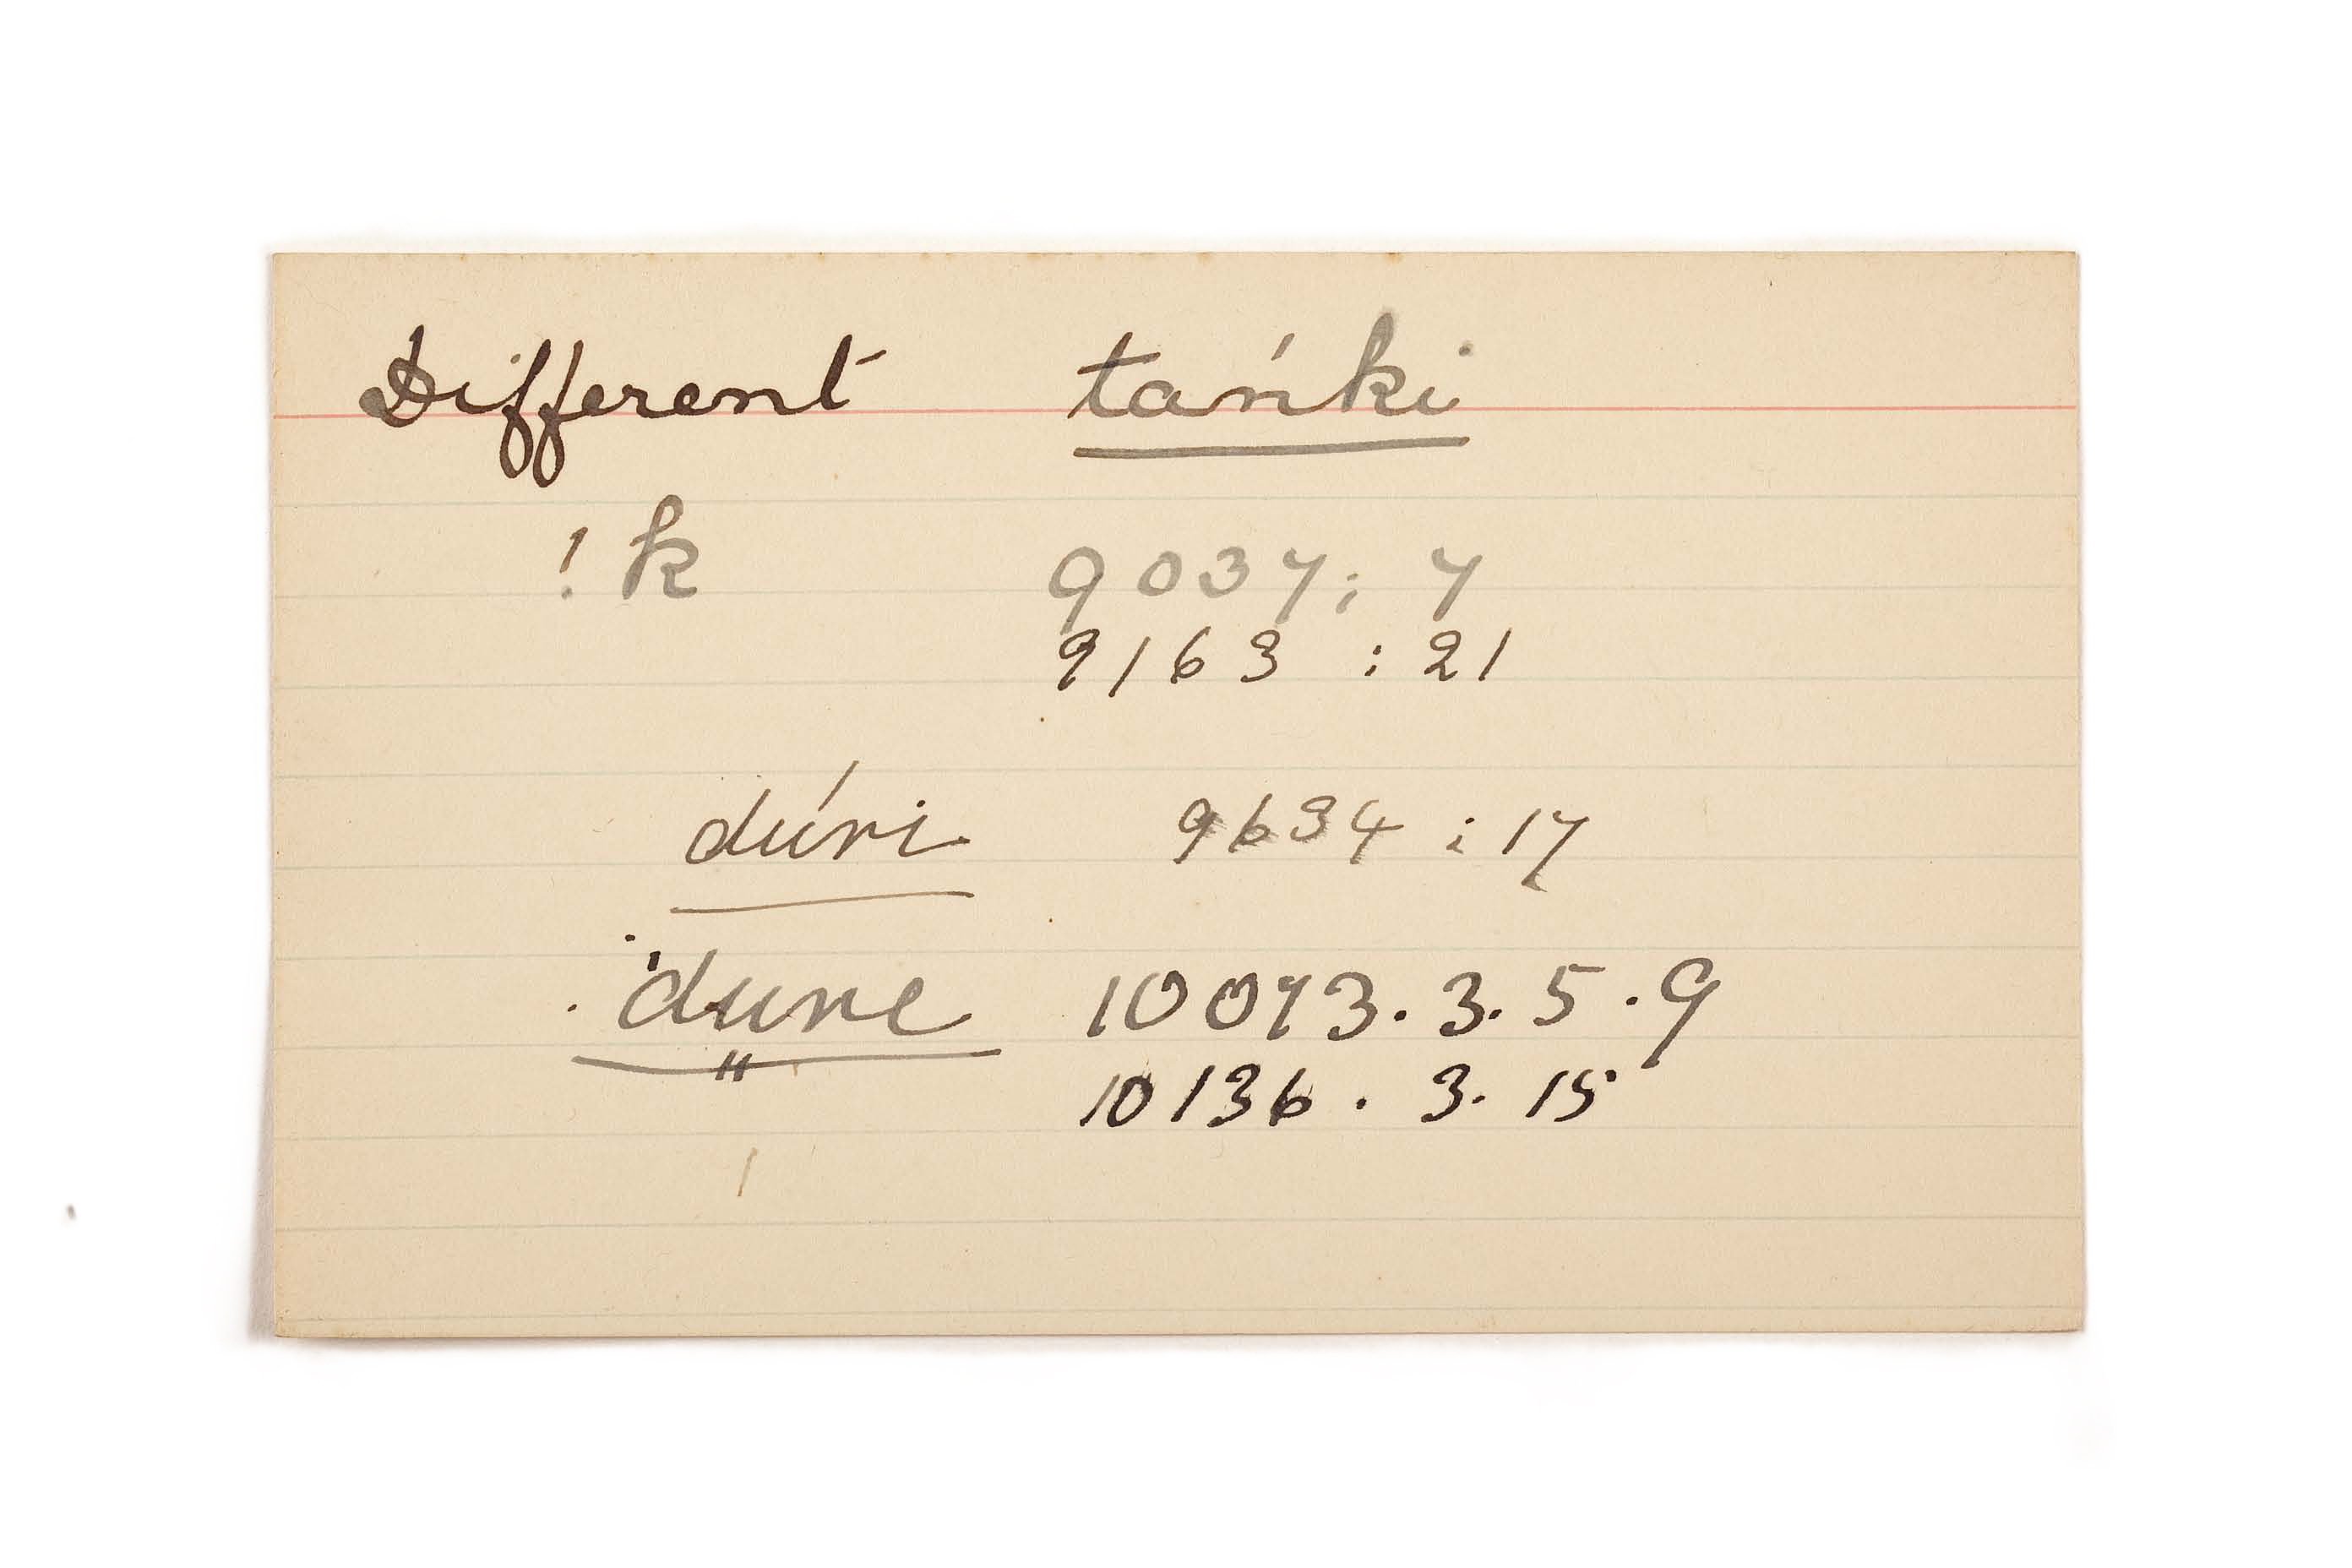 Different tańki
! k 9037 ; 7
9163 : 21
dúri 9634 ; 17
dure 10073. 3. 5. 9
10136. 3. 15